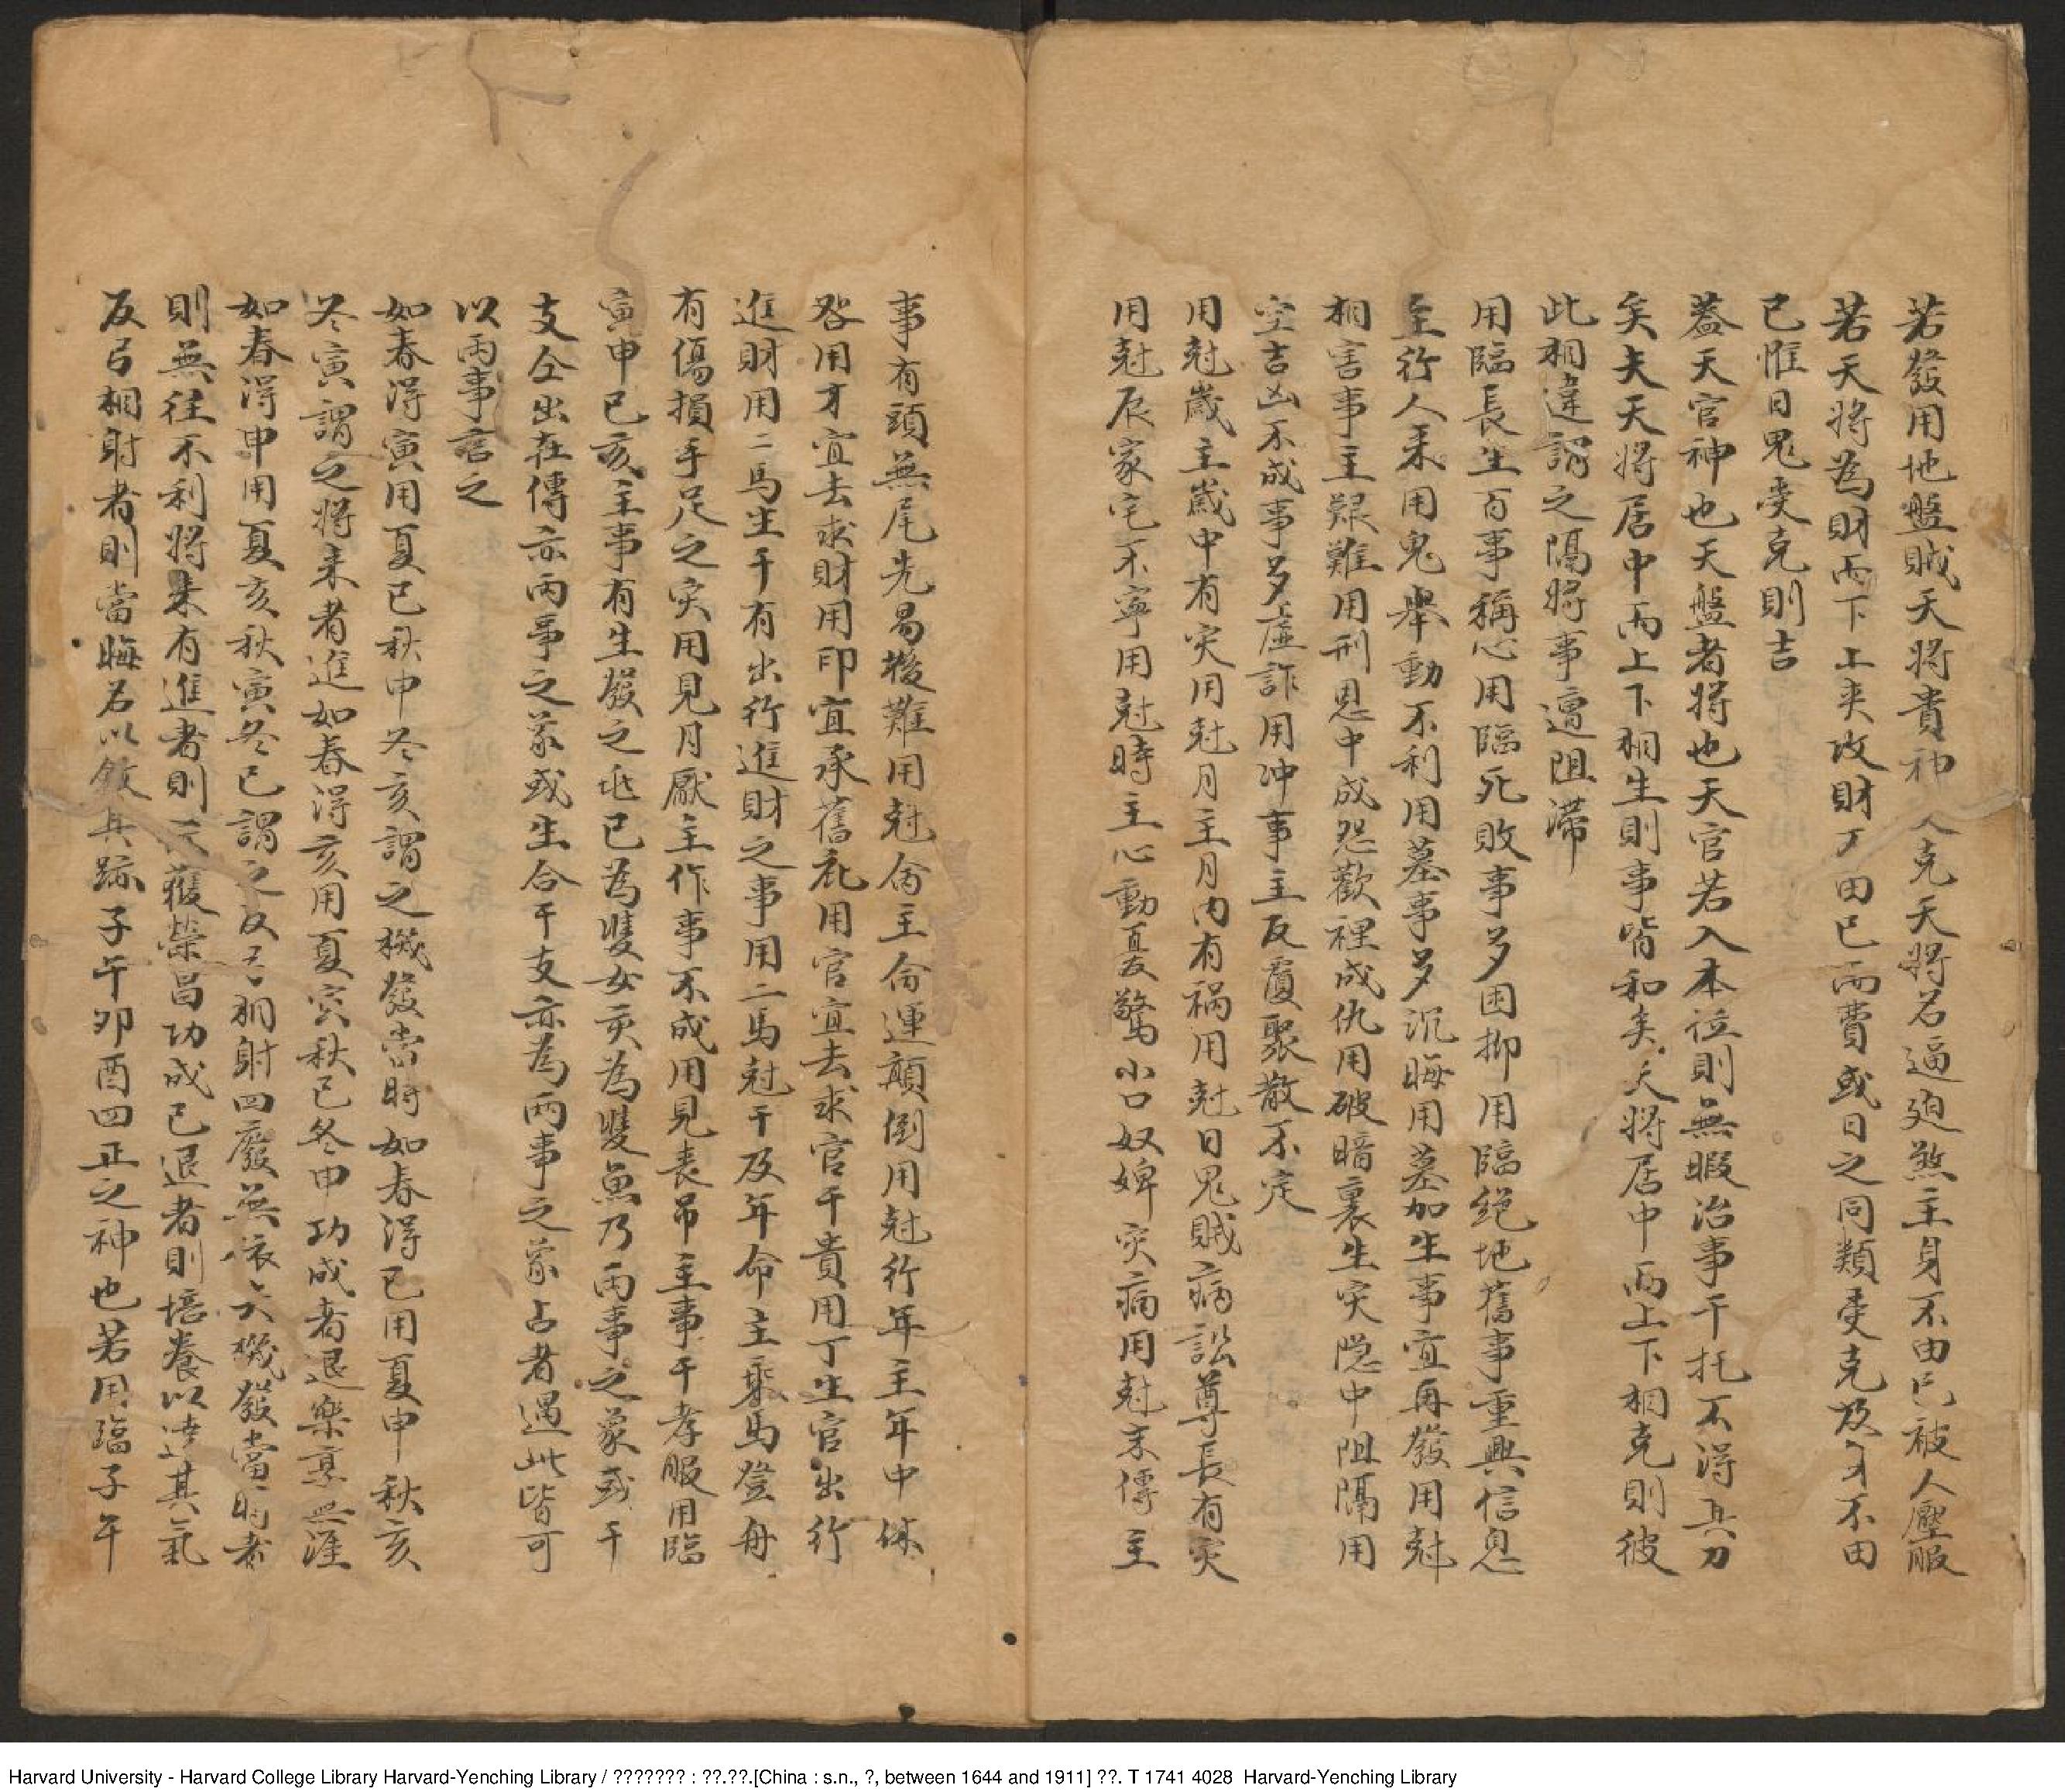 若發用地盤賊天將貴神人克天將名逼廹煞主身不由己被人壓服
若天將為財而下上夾攻財不由已而費或日之同類受克身不由
已惟日鬼受克則吉
蓋天官神也天盤者將也天官若入本位則無暇治事干托不得其力
矣夫天將居中而上下相生則事皆和矣天將居中而上下相克則彼
此相違謂之隔將事遭阻滯
用臨長生百事稱心用臨死敗事多困抑用臨絕地舊事重興信息
至行人来用鬼舉動不利用墓事多沉晦用墓加生事宜再發用尅
相害事主艱難用刑恩中成怨歡裡成仇用破暗裏生灾隐中阻隔用
空吉凶不成事多虛詐用冲事主反覆聚散不定
用尅歲主歲中有灾用尅月主月内有禍用尅日鬼賊病訟尊長有灾
用尅辰家宅不寧用尅時主心動憂驚小口奴婢灾病用尅末傳主
事有頭無尾先易後難用尅命主命運顛倒用尅行年主年中休
咎用才宜去求財用印宜承舊祀用官宜去求官干貴用丁主官出行
進財用二馬生干有出行進財之事用二馬尅干及年命主乘馬登舟
有傷損手足之灾用見月厭主作事不成用見喪吊主事干孝服用臨
寅申巳亥主事有生發之兆巳為雙女亥為雙魚乃兩事之象或干
支仝出在傳亦兩事之象或生合干支亦為兩事之象占者遇此皆可
以兩事言之
如春得寅用夏巳秋申冬亥謂之機發當時如春得巳用夏申秋亥
冬寅謂之將来者進如春得亥用夏寅秋巳冬申功成者退樂享無涯
如春得申用夏亥秋寅冬巳謂之反弓相射四廢無依夫機發當時者
則無往不利將来有進者則必獲榮昌功成已退者則培養以達其氣
反弓相射者則當晦名以斂其跡子午卯酉四正之神也若用臨子午
Harvard University - Harvard College Library Harvard-Yenching Library / ??????? : ??.??.[China : s.n., ?, between 1644 and 1911] ??. T 1741 4028 Harvard-Yenching Library